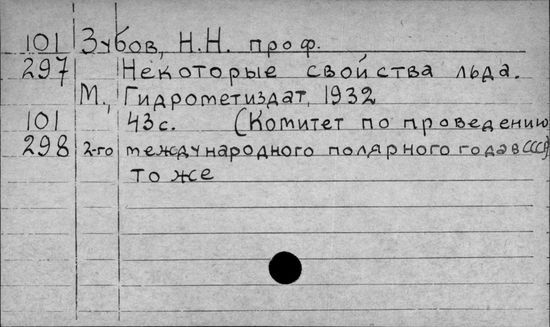 101 Зубов, Н.Н. проф.
297 Некоторые свойства льда.
М., Гидрометиздат, 1932
101 43 с. (Комитет по проведению
298 2-го международного полярного года в СССР)
то же